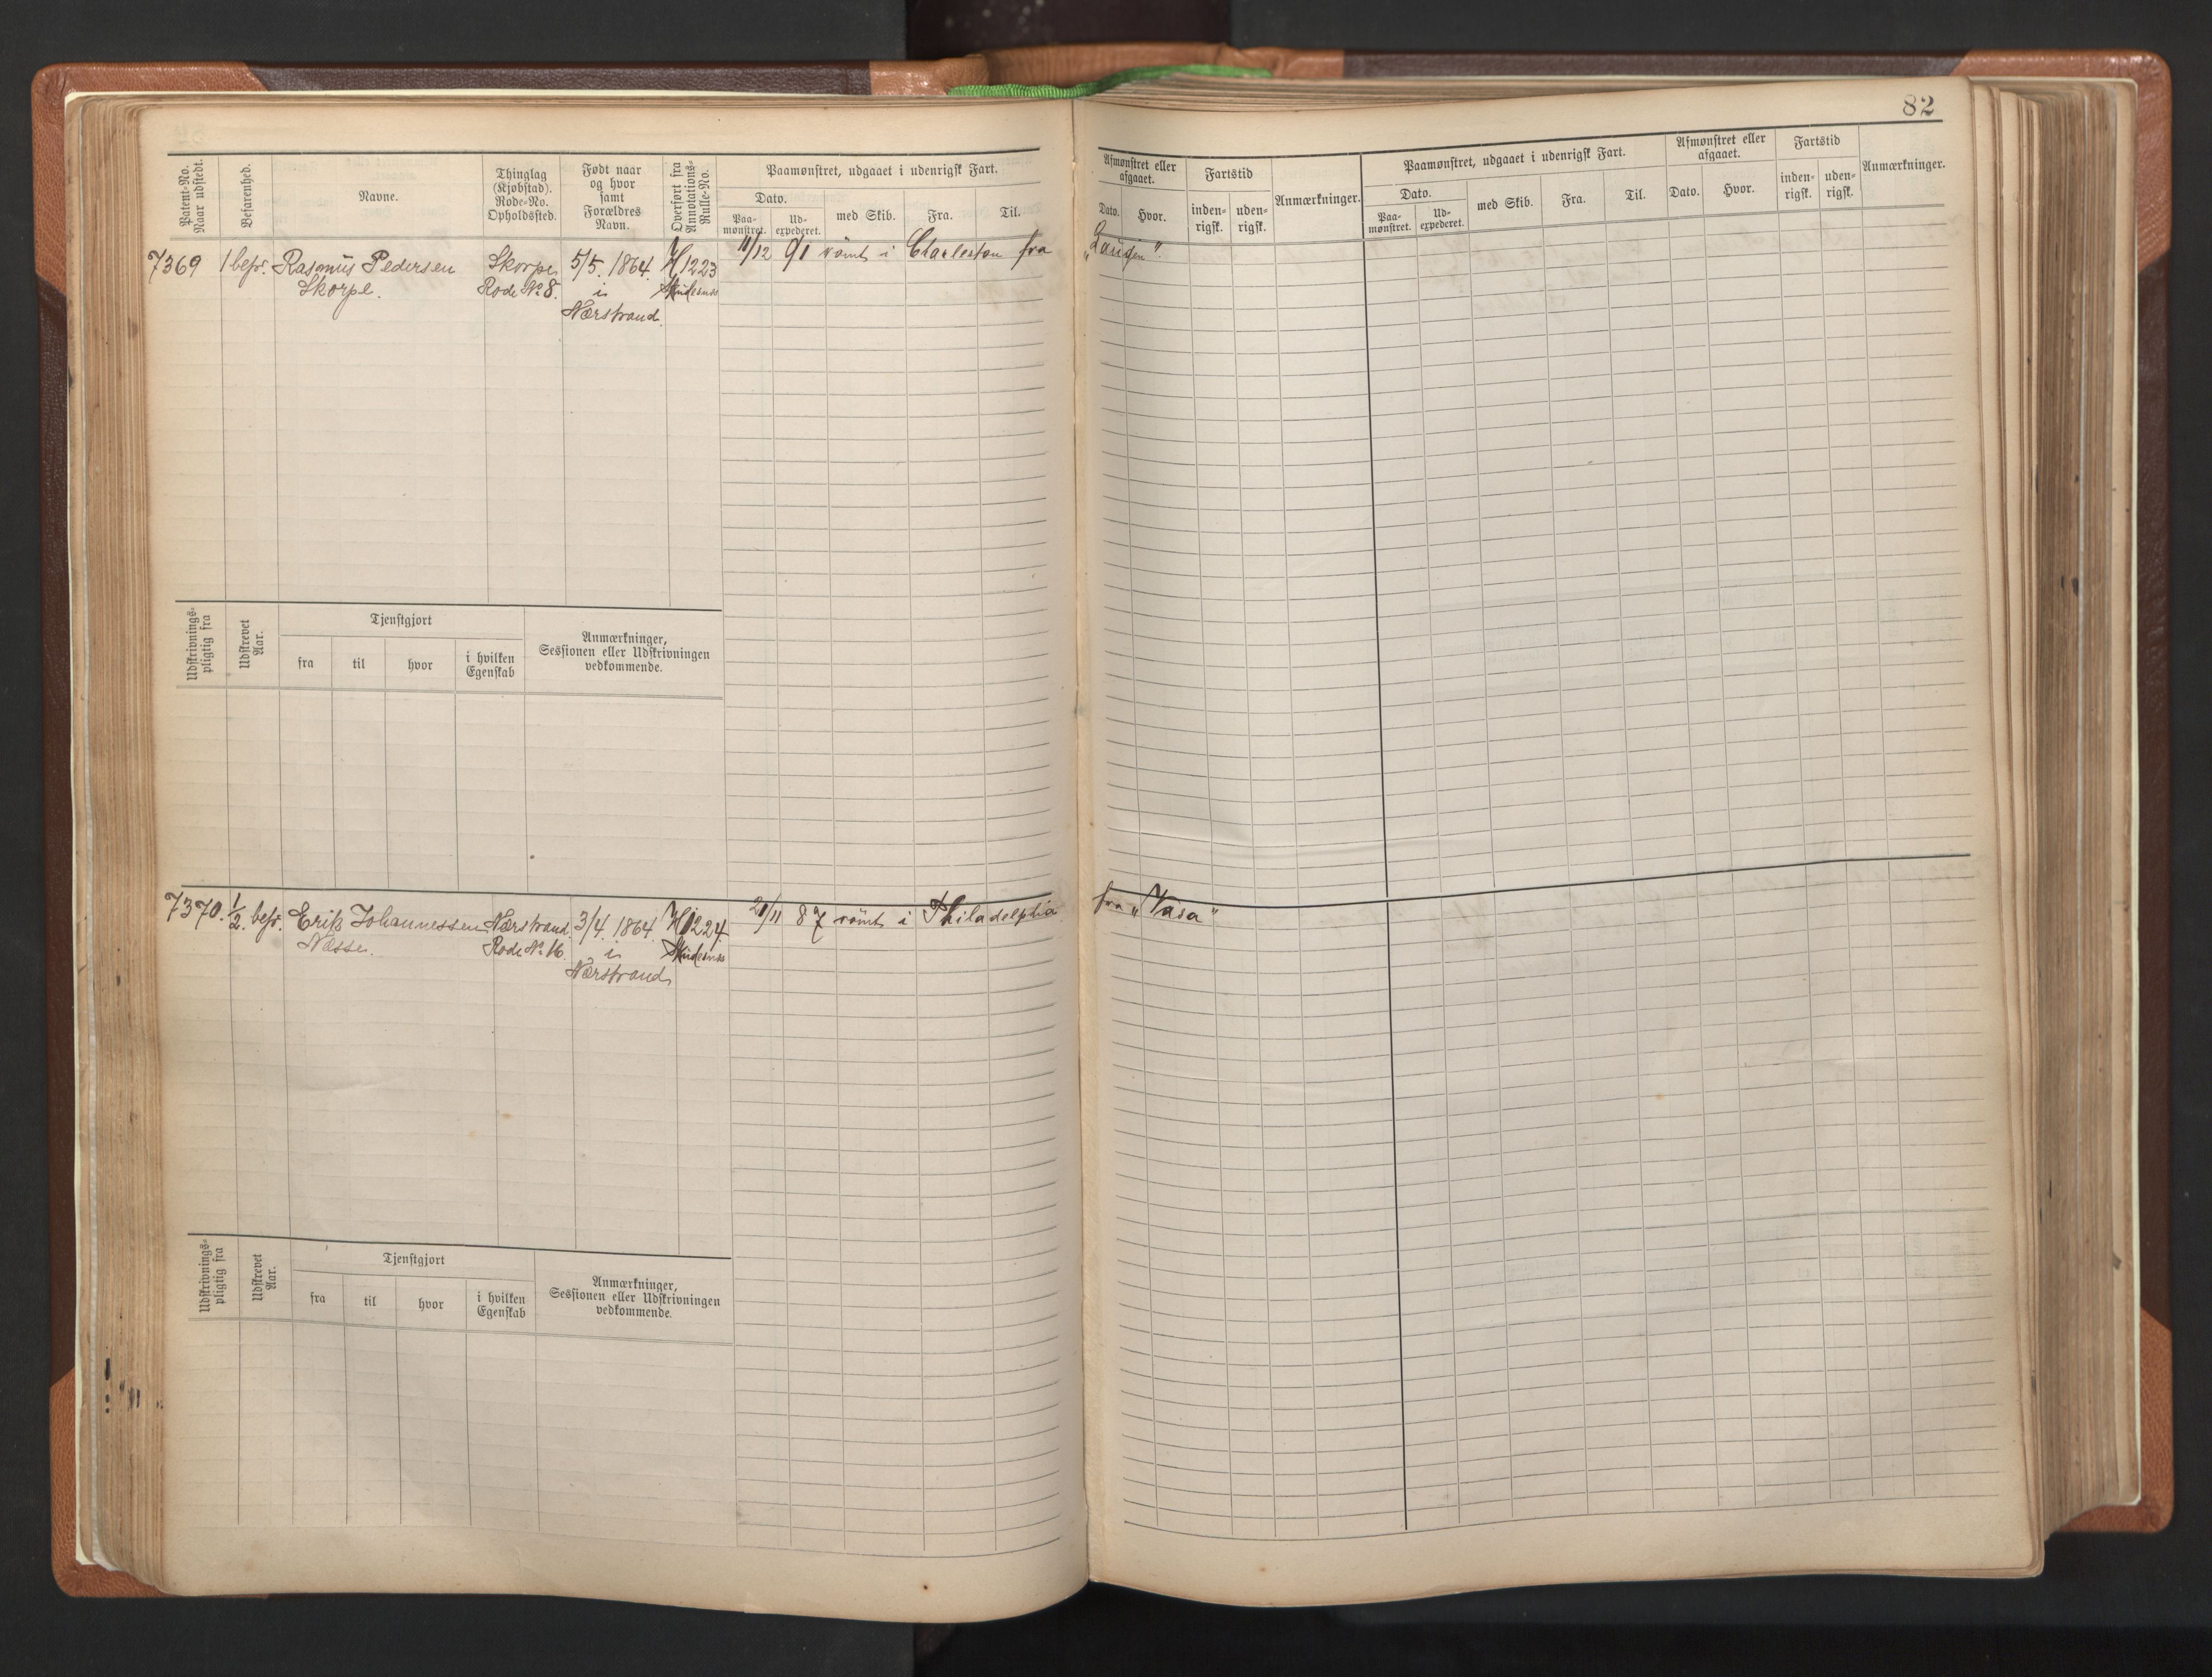 82
Patent-No. Naar udstedt.
Befarenhed.
Navne.
Thinglag (Kjøbstad). Rode-No. Opholdssted.
Født naar og hvor samt Forældres Navn.
Overført fra Annotations-Rulle-No.
Paamønstret, udgaaet i udenrigsk Fart.
Dato.
Paa-mønstret.
Ud-expederet.
med Skib.
Fra.
Til.
Afmønstret eller afgaaet.
Dato.
Hvor.
Fartstid
inden-rigsk.
uden-rigsk.
Anmærkninger.
Paamønstret, udgaaet i udenrigsk Fart.
Dato.
Paa-mønstret.
Ud-expederet.
med Skib.
Fra.
Til.
Afmønstret eller afgaaet.
Dato.
Hvor.
Fartstid
inden-rigsk.
uden-rigsk.
Anmærkninger.
7369 1 befr. Rasmus Pedersen Skorpe 5/5. 1864. H1223 11/12 91 römt i Charleston fra
Skorpe. Rode No 8. i Skudesnes
Nærstrand.
Udskrivnings-pligtig fra
Udskrevet Aar.
Tjenstgjort
fra
til
hvor
i hvilken Egenskab
Anmærkninger, Sessionen eller Udskrivningen vedkommende.
7370. 1/2 befr. Erik Johannessen Nærstrand 3/4. 1864. H1224 römt i Philadelphia fra "Vasa"
Næsse. Rode No 16. i Skudesnes
Nærstrand
Udskrivnings-pligtig fra
Udskrevet Aar.
Tjenstgjort
fra
til
hvor
i hvilken Egenskab
Anmærkninger, Sessionen eller Udskrivningen vedkommende.